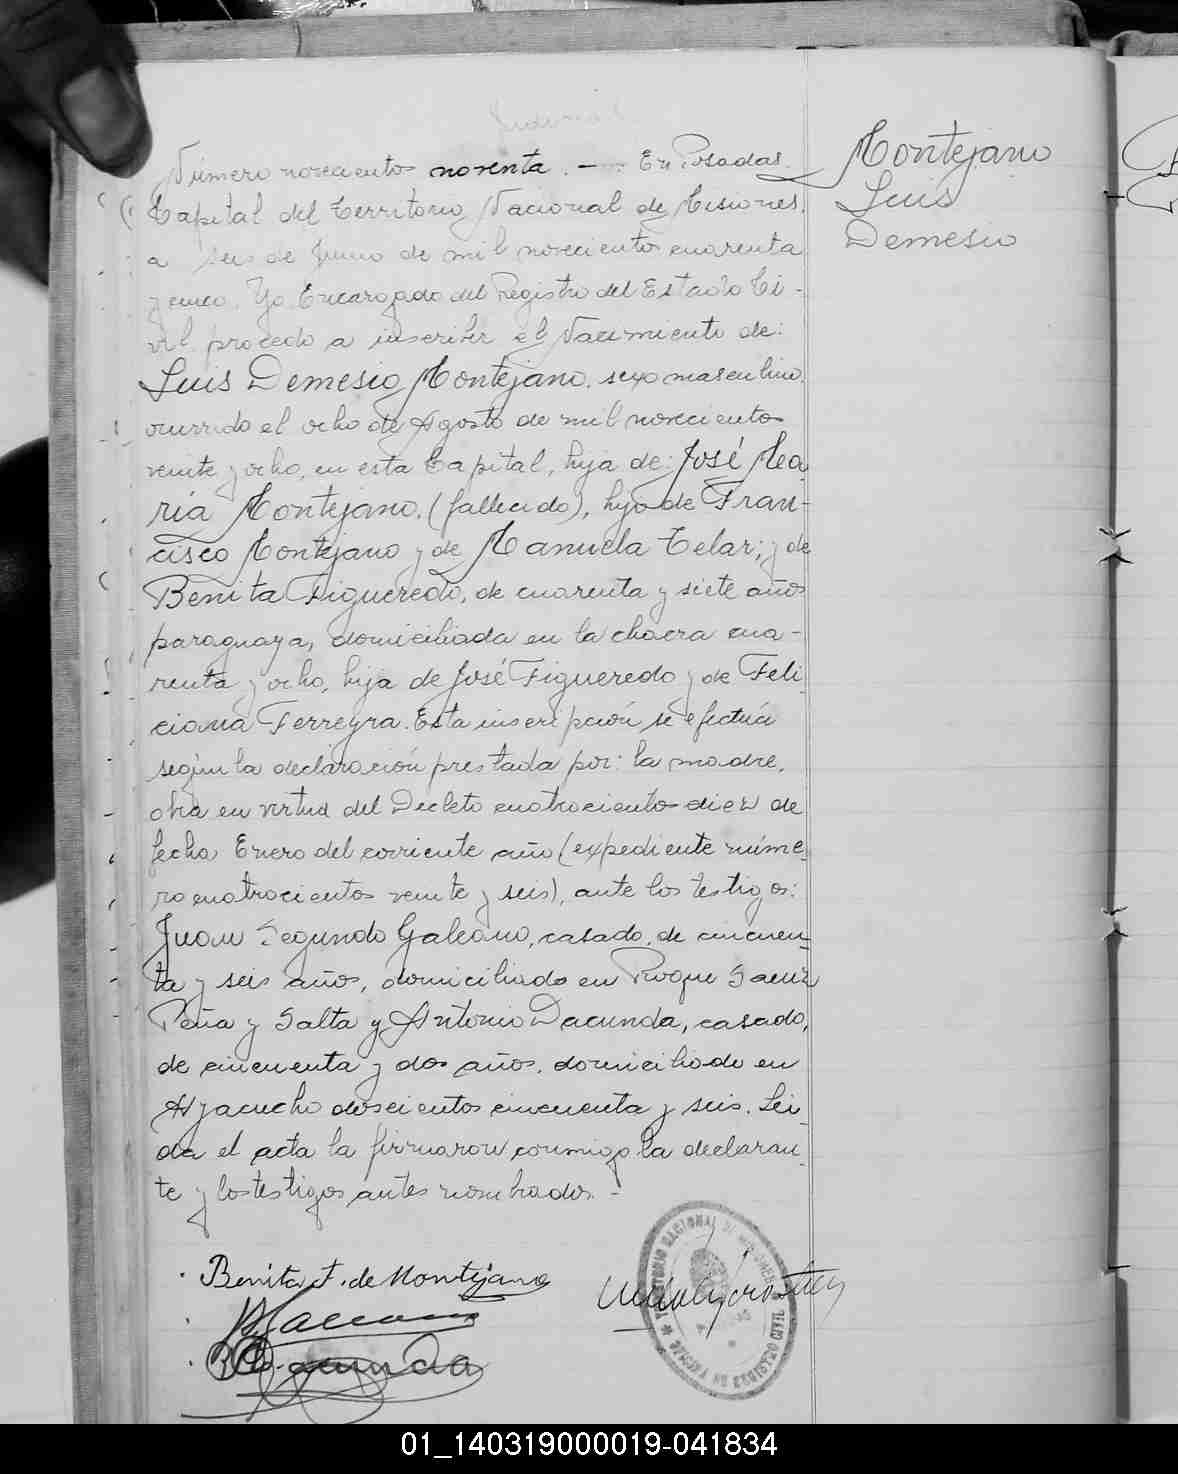 Número novecientos noventa. — En Posadas
Capital del Territorio Nacional de Misiones,
a seis de Junio de mil novecientos cuarenta
y cinco. Yo Encargado del Registro del Estado Ci-
vil procedo a inscribir el Nacimiento de:
Luis Demesio Montejano, sexo masculino,
ocurrido el ocho de Agosto de mil novecientos
veinte y ocho, en esta Capital, hijo de: José Ma
ria Montejano, (fallecido), hijo de Fran-
cisco Montejano y de Manuela Telar; y de
Benita Figueredo, de cuarenta y siete años
paraguaya, domiciliada en la chacra cua-
renta y ocho, hija de José Figueredo y de Feli-
ciana Ferreyra. Esta inscripción se efectúa
según la declaración prestada por: la madre,
obra en virtud del Decreto cuatrocientos diez de
fecha Enero del corriente año (expediente núme-
ro cuatrocientos veinte y seis), ante los testigos:
Juan Segundo Galeano, casado, de cincuen-
ta y seis años, domiciliado en Roque Saenz
Peña y Salta y Antonio Dacunda, casado,
de cincuenta y dos años, domiciliado en
Ayacucho doscientos cincuenta y seis. Lei-
da el acta la firmaron conmigo la declaran-
te y los testigos antes nombrados. -
Montejano
Luis
Demesio
Benita F. de Montejano
01_140319000019-041834